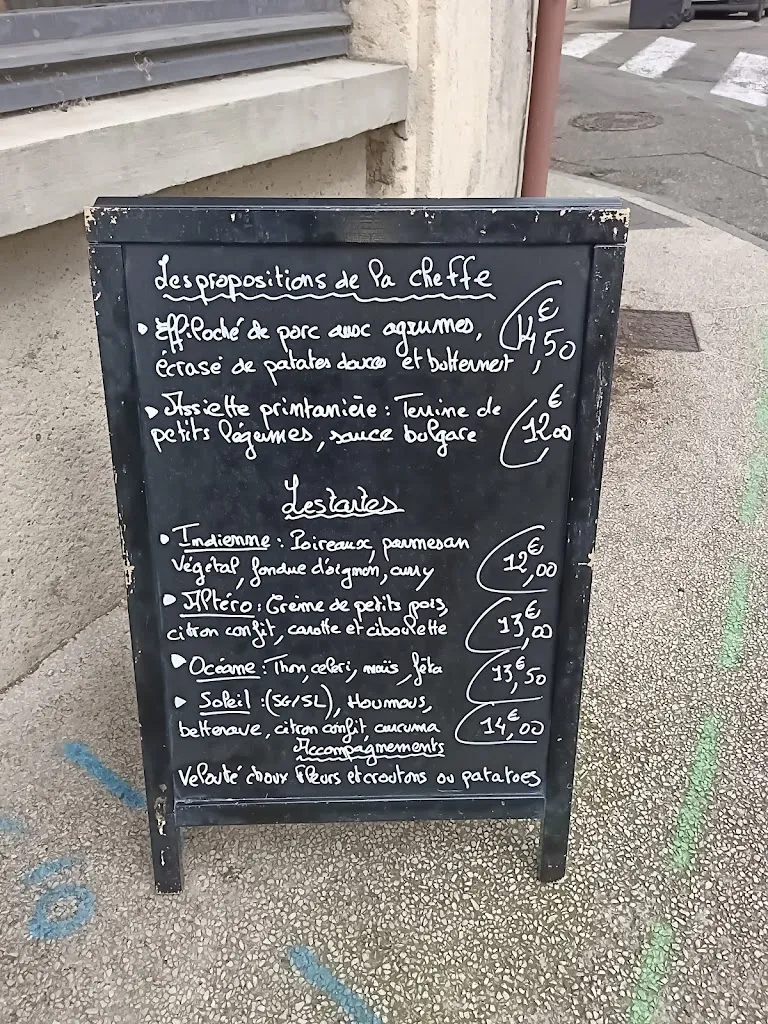 Les propositions de la cheffe
• Effiloché de porc aux agrumes, 14€,50
écrasé de patates douces et butternut
• Assiette printanière : Terrine de
petits légumes, sauce bulgare 12€00
Les tartes
• Indienne : Poireaux, parmesan
végétal, fondue d'oignon, curry 12€,00
• Altéro : Crème de petits pois,
citron confit, carotte et ciboulette 13€,00
• Océane : Thon, celeri, maïs, féta 13€,50
• Soleil : (SG/SL), Houmous,
betterave, citron confit, curcuma 14€,00
Accompagnements
Velouté choux fleurs et croutons ou patatoes